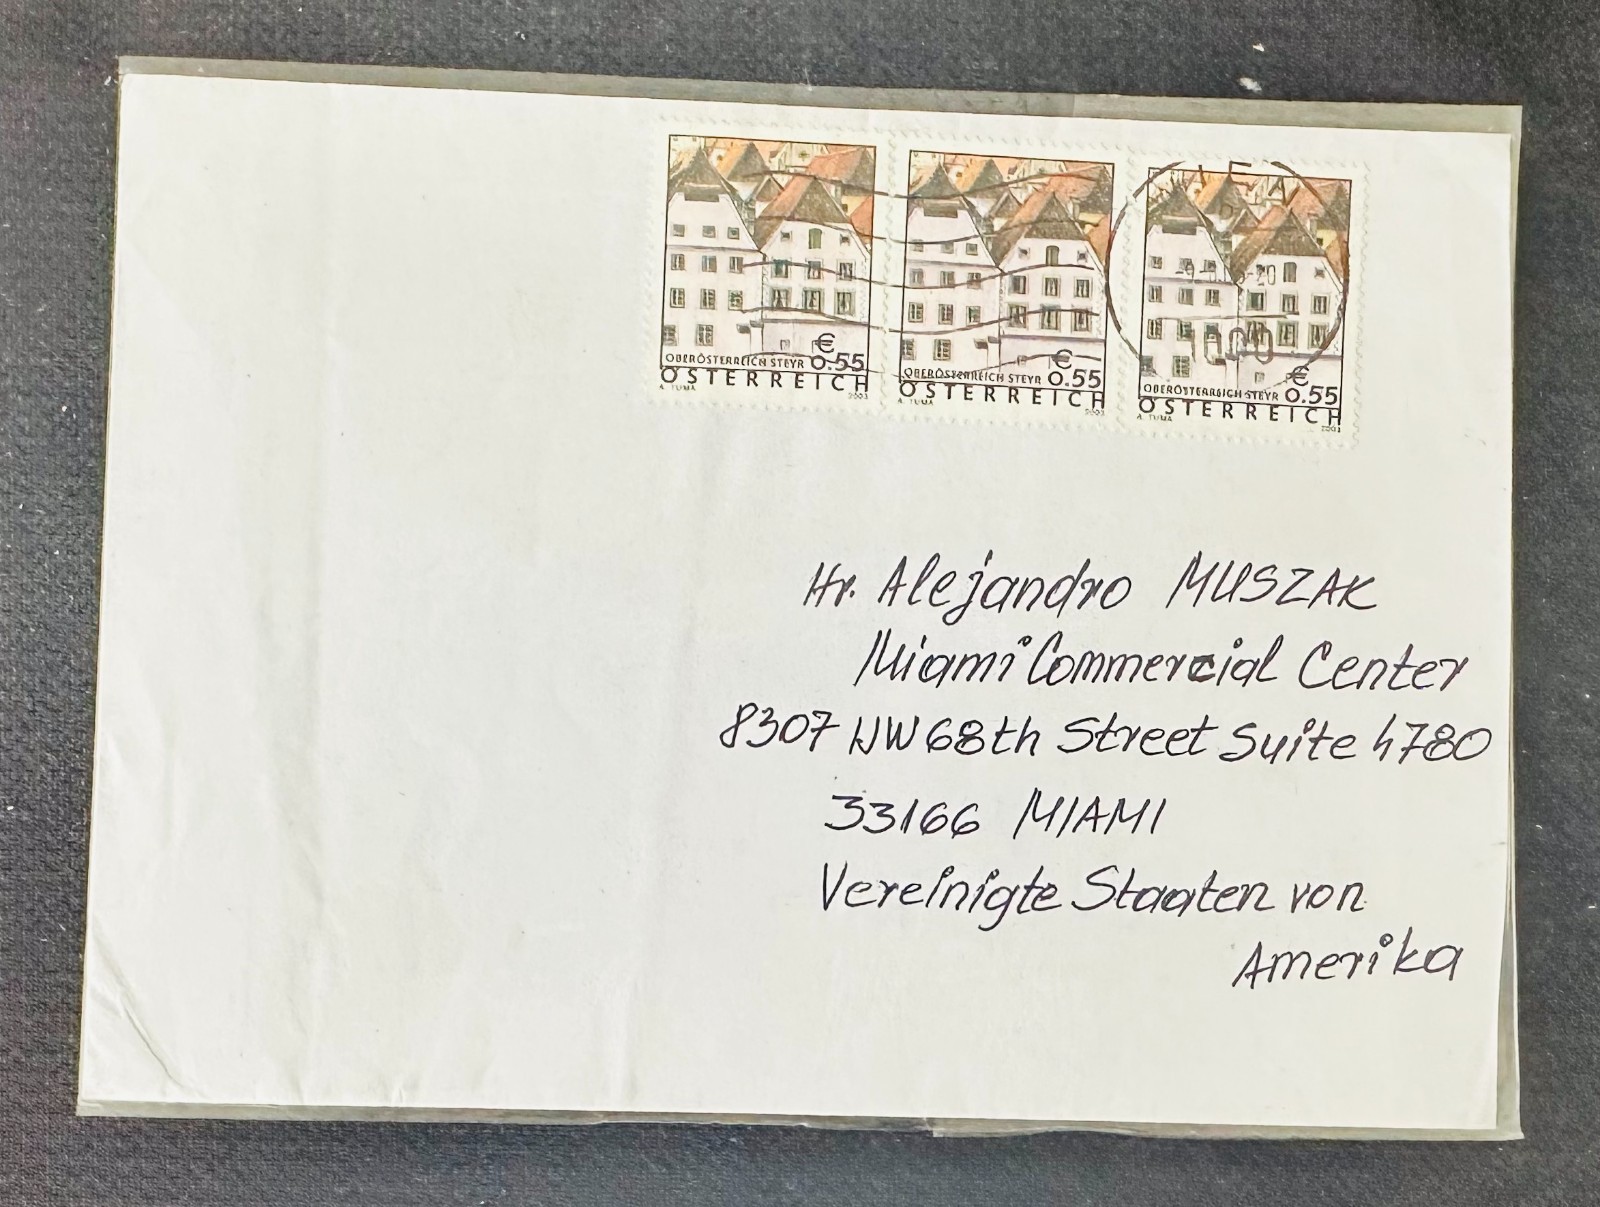 €
OBERÖSTERREICH STEYR 0.55
ÖSTERREICH
A. TUMA 2003
€
OBERÖSTERREICH STEYR 0.55
ÖSTERREICH
A. TUMA 2003
€
OBERÖSTERREICH STEYR 0.55
ÖSTERREICH
A. TUMA 2003
Hr. Alejandro MUSZAK
Miami Commercial Center
8307 NW 68th Street Suite 4780
33166 MIAMI
Vereinigte Staaten von
Amerika